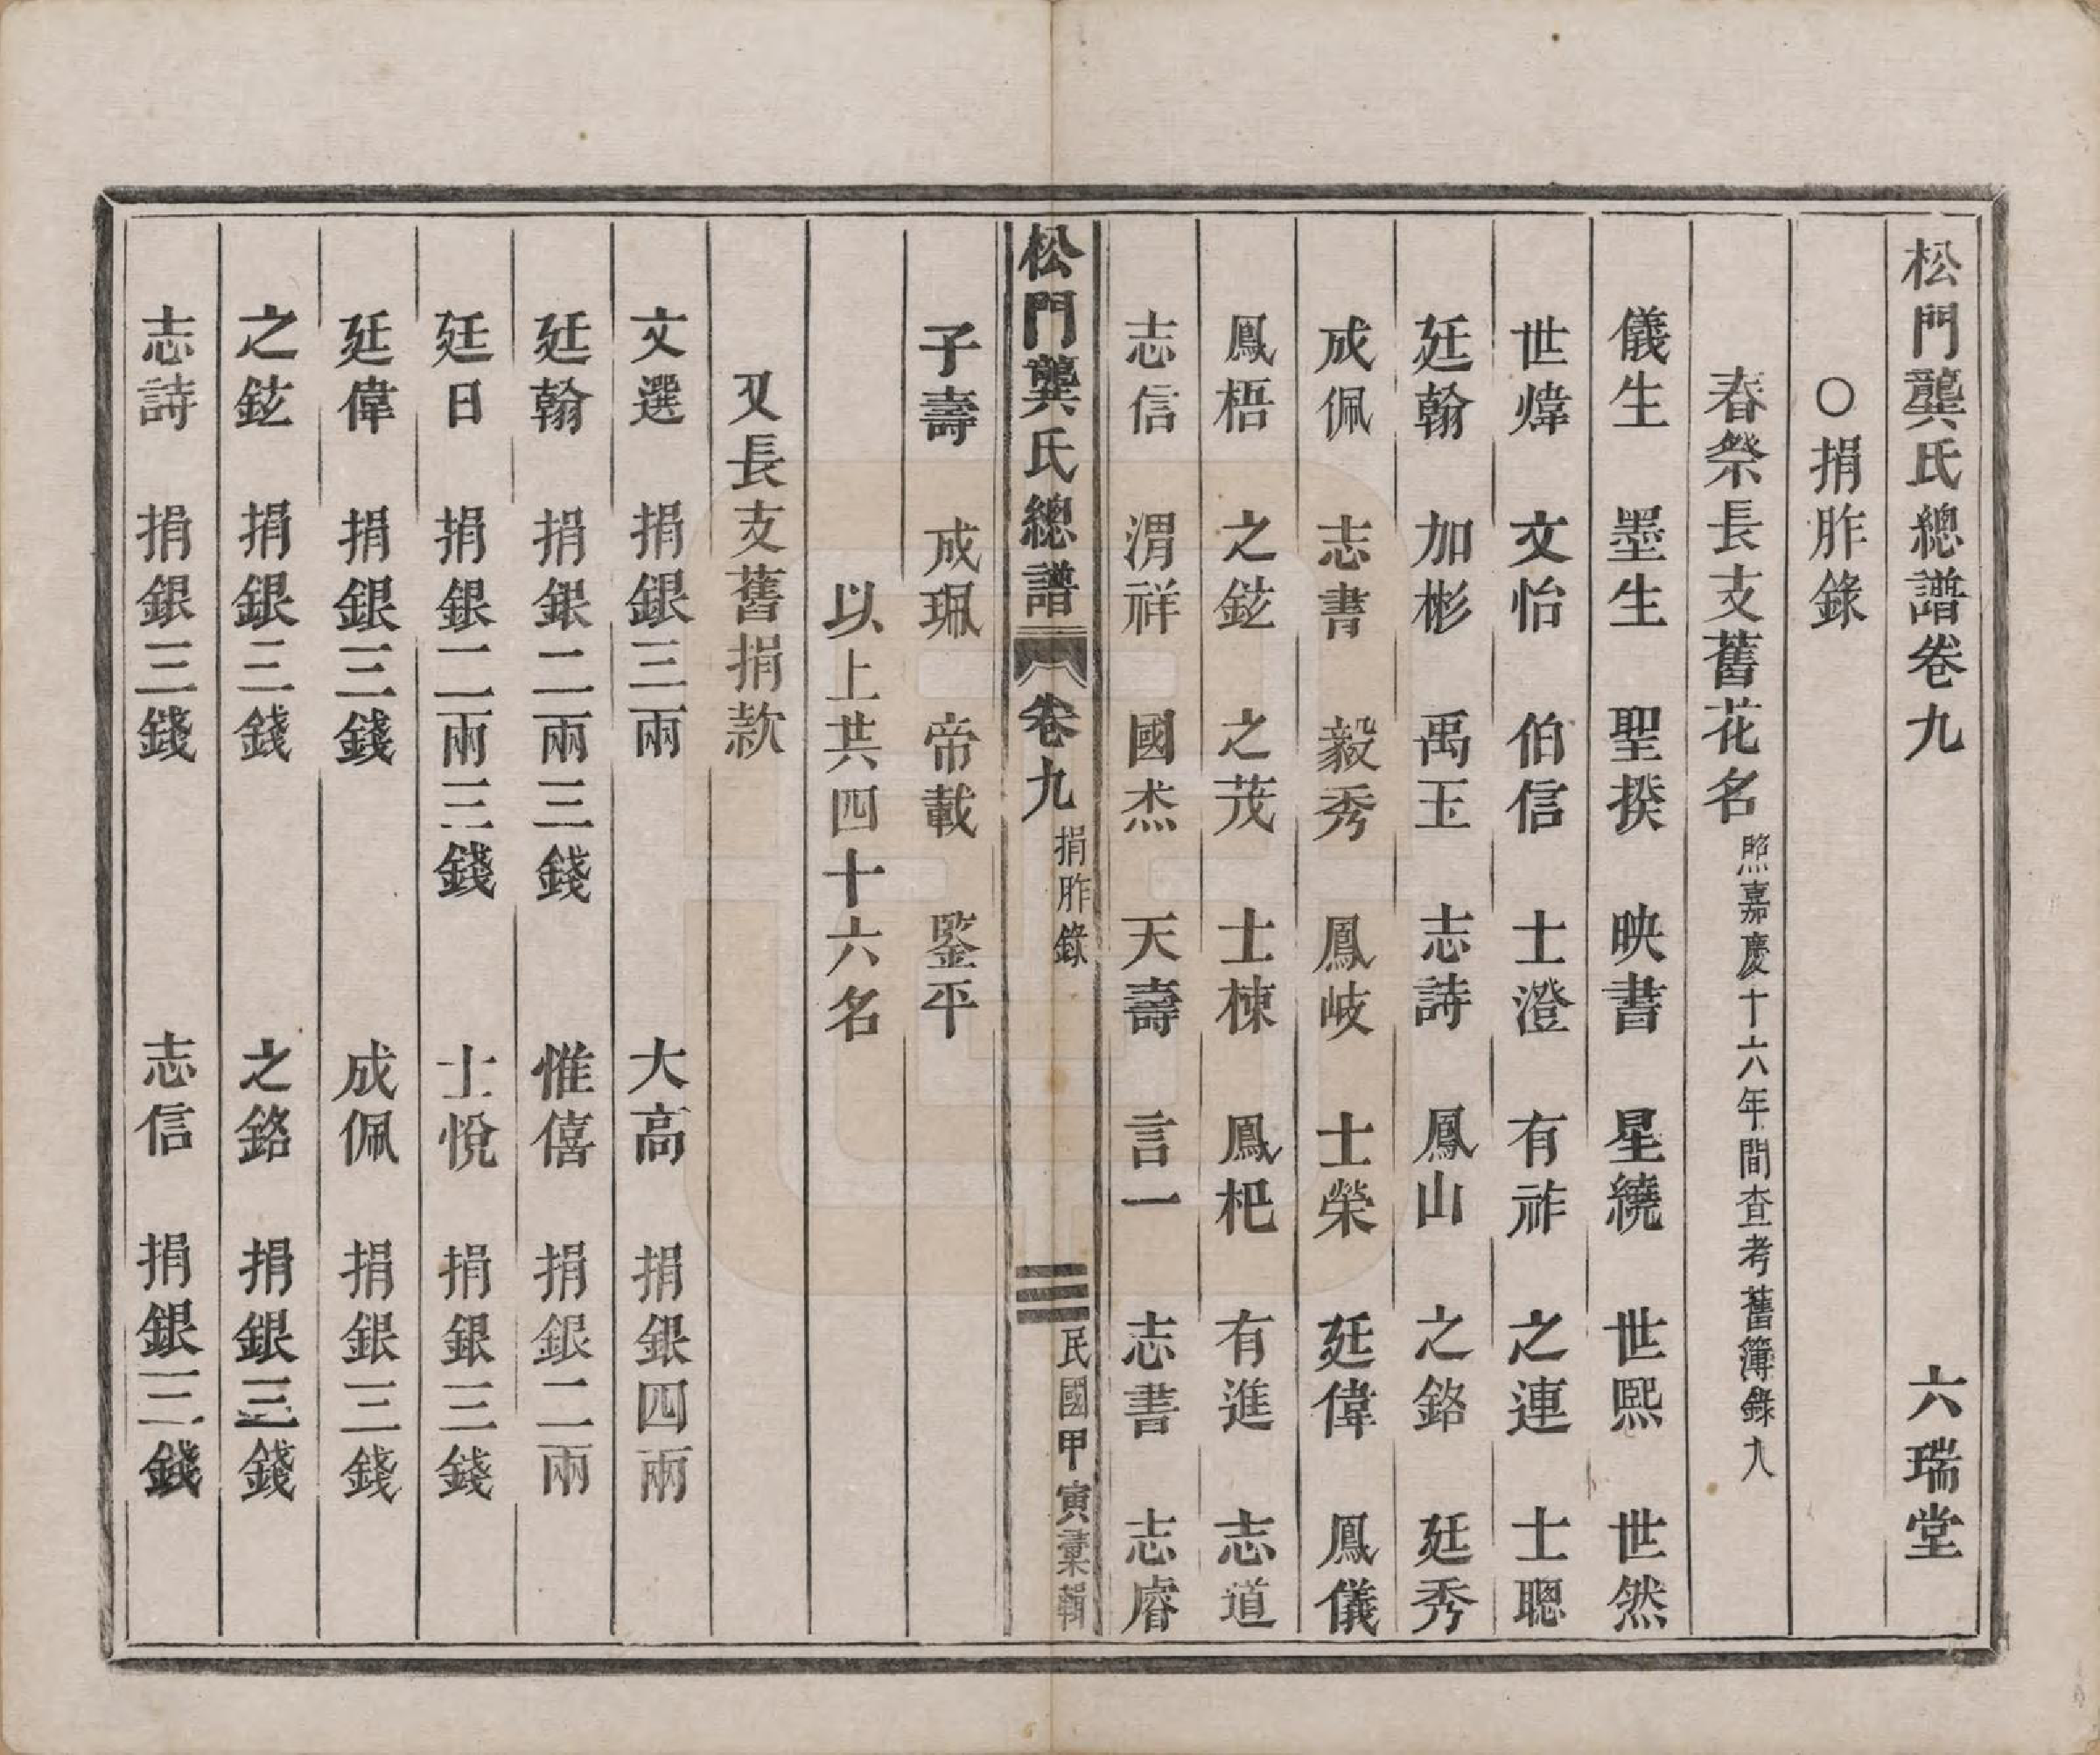 松門龔氏總譜卷九　六瑞堂
○捐胙錄
春祭長支舊花名照嘉慶十六年間查考舊簿錄入
儀生　墨生　聖揆　映書　星繞　世熙　世然
世煒　文怡　伯信　士澄　有祚　之連　士聰
廷翰　加彬　禹玉　志詩　鳳山　之銘　廷秀
成佩　志書　毅秀　鳳岐　士榮　廷偉　鳳儀
鳳梧　之鉉　之茂　士棟　鳳杷　有進　志道
志信　渭祥　國杰　天壽　言一　志書　志睿
松門龔氏總譜　卷九　捐胙錄　三　民國甲寅彙輯
子壽　成珮　帝載　鑒平
以上共四十六名
又長支舊捐款
文選　捐銀三兩　大高　捐銀四兩
廷翰　捐銀二兩三錢　惟僖　捐銀二兩
廷日　捐銀二兩三錢　士悅　捐銀三錢
廷偉　捐銀三錢　成佩　捐銀三錢
之鉉　捐銀三錢　之銘　捐銀三錢
志詩　捐銀三錢　志信　捐銀三錢